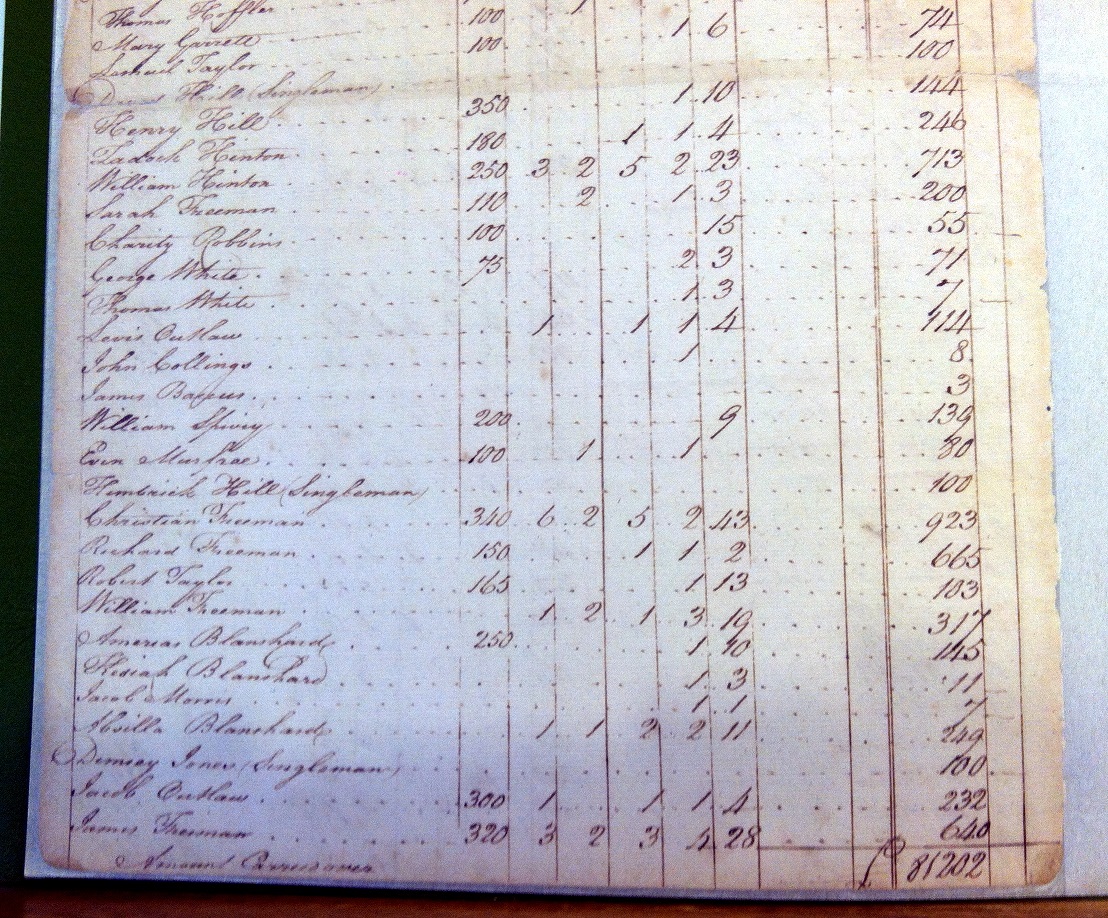 Thomas Hoffler 100 1
Mary Garrett 100 1 6 74
Samuel Taylor 100
Hill (Singleman) 144
Henry Hill 350 1 10 246
Zadock Hinton 180 1 1 4
William Hinton 250 3 2 5 2 23 713
Sarah Freeman 110 2 1 3 200
Charity Robbins 100 15 55
George White 75 2 3 71
Thomas White 1 3 7
Lewis Outlaw 1 1 1 4 114
John Collings 1 8
James 3
William Spivey 200 9 139
Even Murfree 100 1 1 80
Hill (Singleman) 100
Christian Freeman 340 6 2 5 2 43 923
Richard Freeman 150 1 1 2 665
Robert Taylor 165 1 13 103
William Freeman 1 2 1 3 19 317
Amereas Blanshard 250 1 10 145
Blanshard 1 3 11
Jacob Morris 1 1 7
Absilla Blanshard 1 1 2 2 11 249
Demsey Jones (Singleman) 100
Jacob Outlaw 300 1 1 1 4 232
James Freeman 320 3 2 3 4 28 640
Amount over 81202